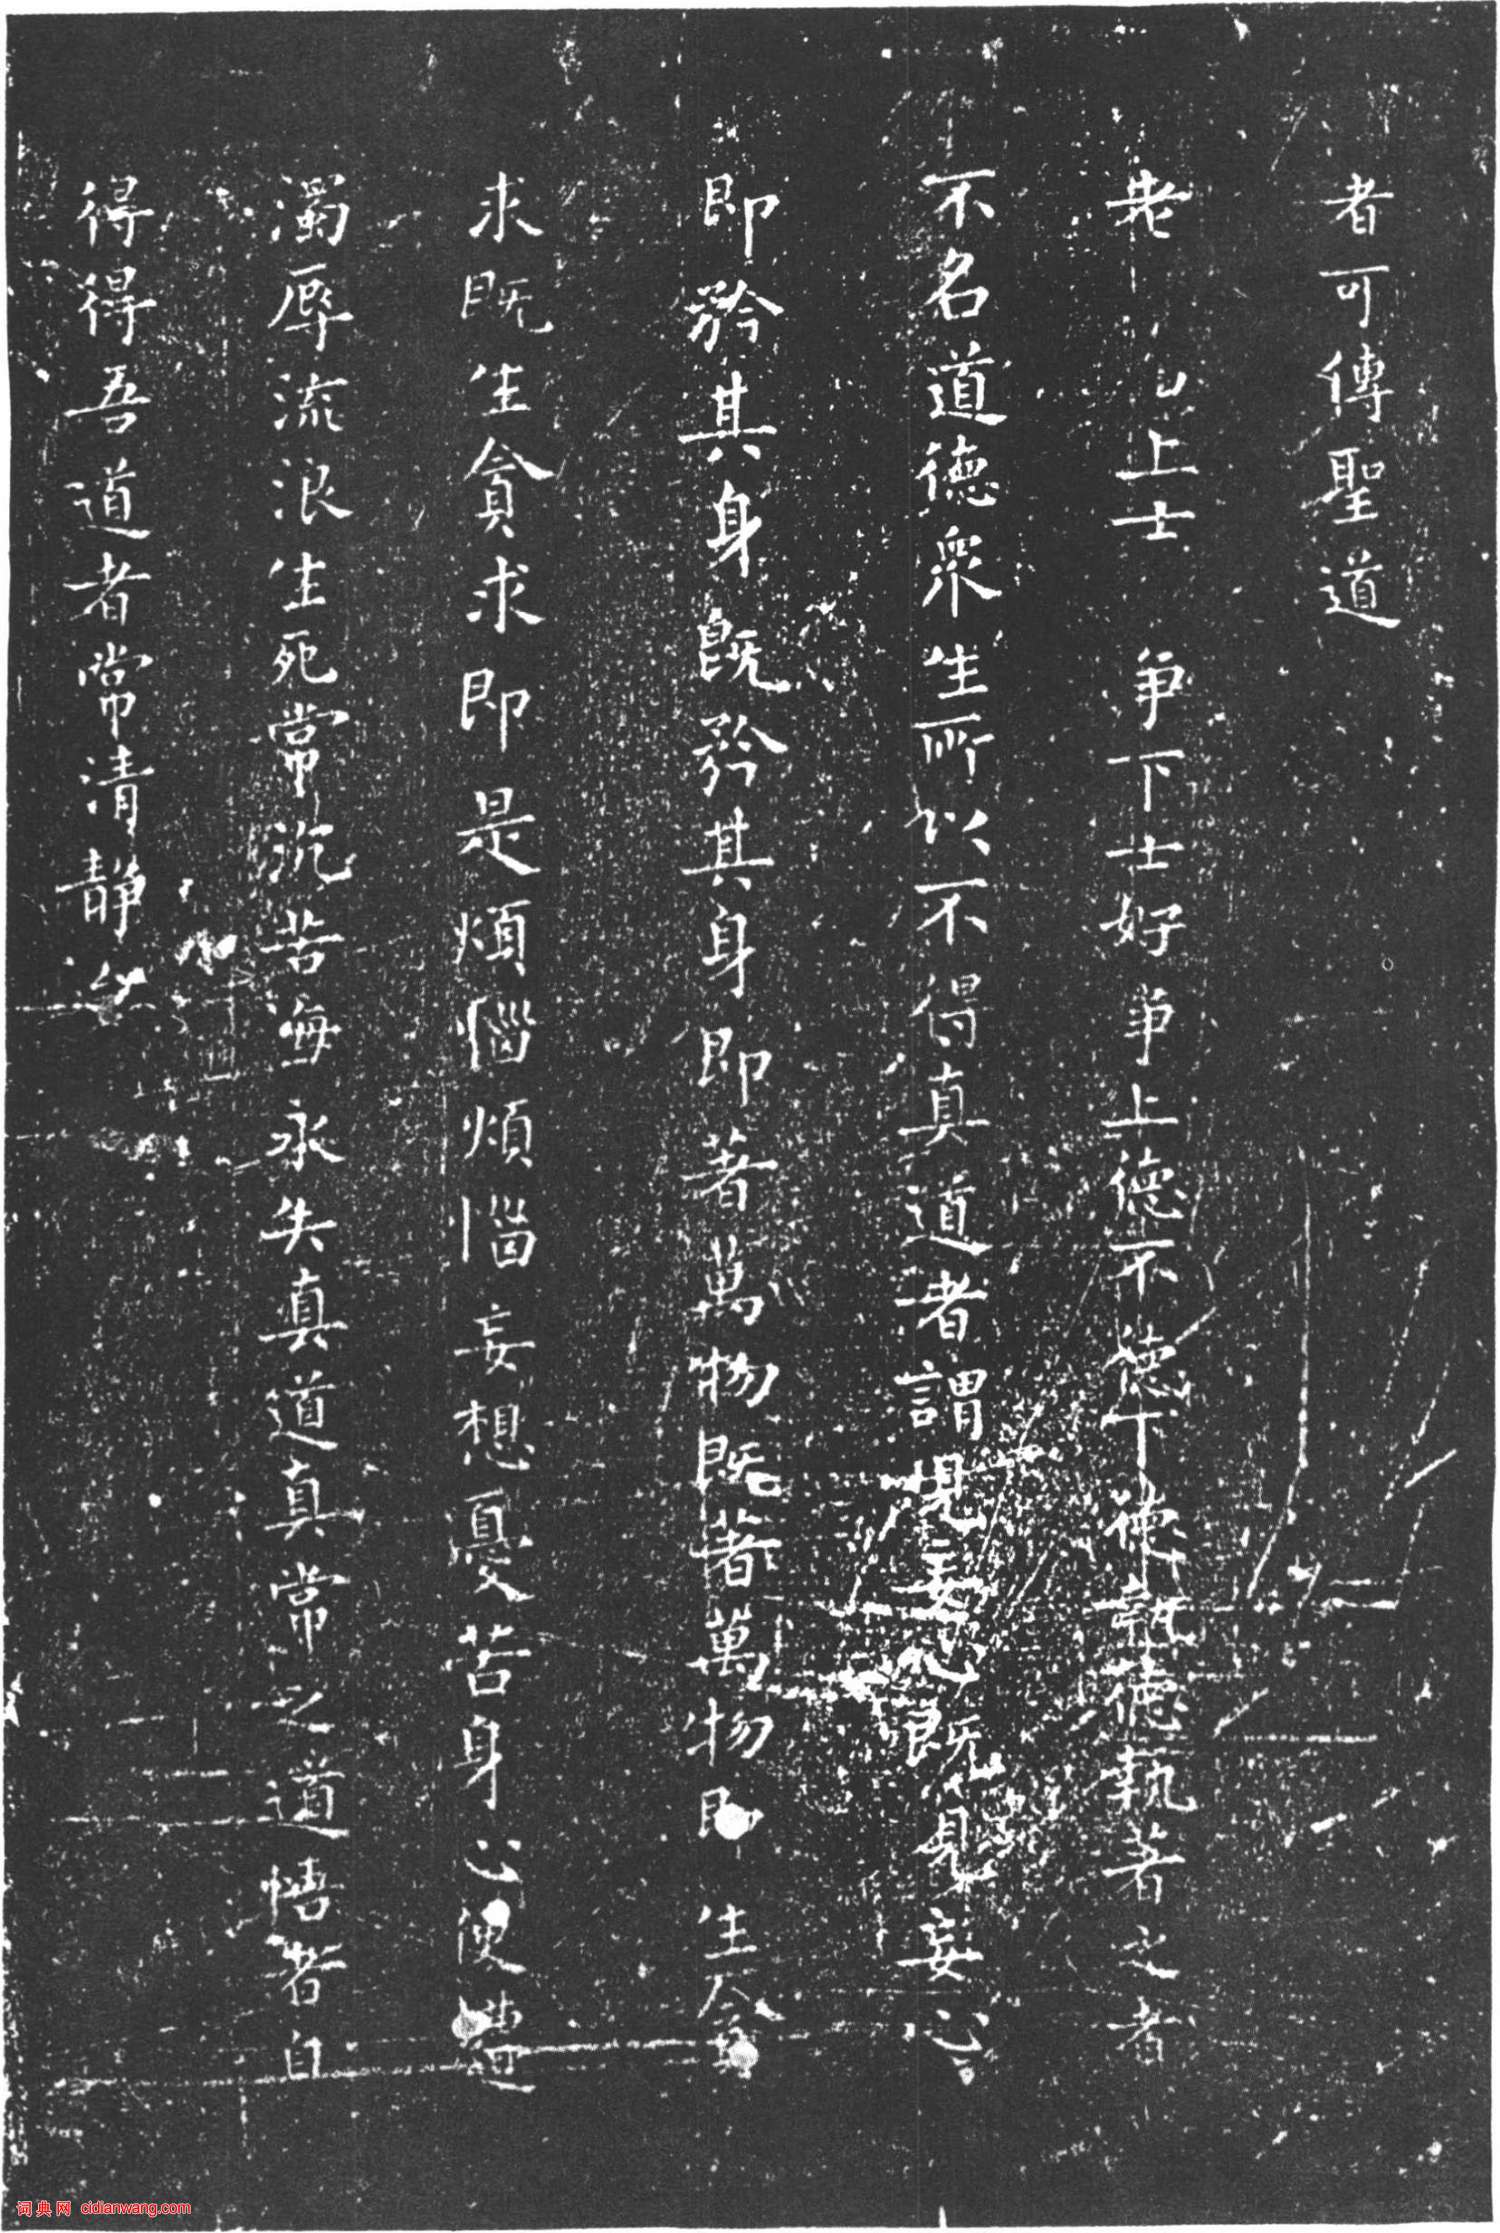 者可傳聖道
老上士爭下士好爭上德不德下德執德執著之者
不名道德衆生所以不得真道者謂見妄心既見妄心
即矜其身既矜其身即著萬物既著萬物即生貪
求既生貪求即是煩惱煩惱妄想憂苦身心便遭
濁辱流浪生死常沉苦海永失真道真常之道悟者自
得得吾道者常清静矣
词典网 cidianwang.com